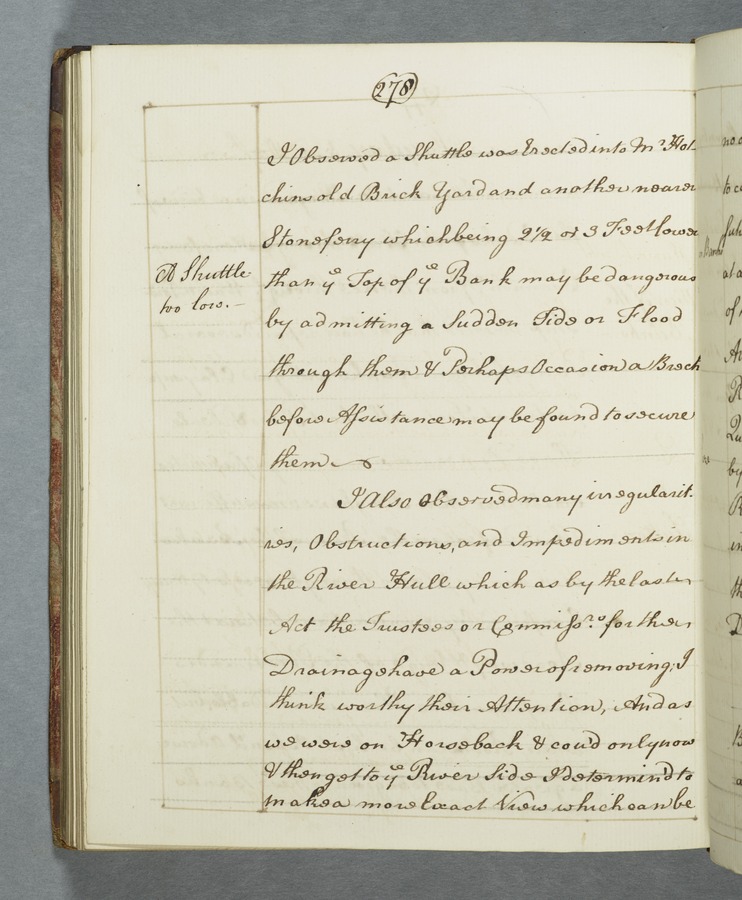 278
I Observed a Shuttle was Erected into Mr. Hot-
chins old Brick Yard and another nearer
Stoneferry which being 2 1/2 or 3 Feet lower
A Shuttle
too low. –
than ye Top of ye Bank may be dangerous
by admitting a Sudden Tide or Flood
through them & Perhaps Occasion a Brech
before Assistance may be found to secure
them
I Also Observed many irregularit-
ies, Obstructions, and Impediments in
the River Hull which as by the last
Act the Trustees or Commissrs. for the
Drainage have a Power of removing; I
think worthy their Attention, And as
we were on Horseback & coud only now
& then get to ye River Side I determin'd to
make a more Exact View which can be